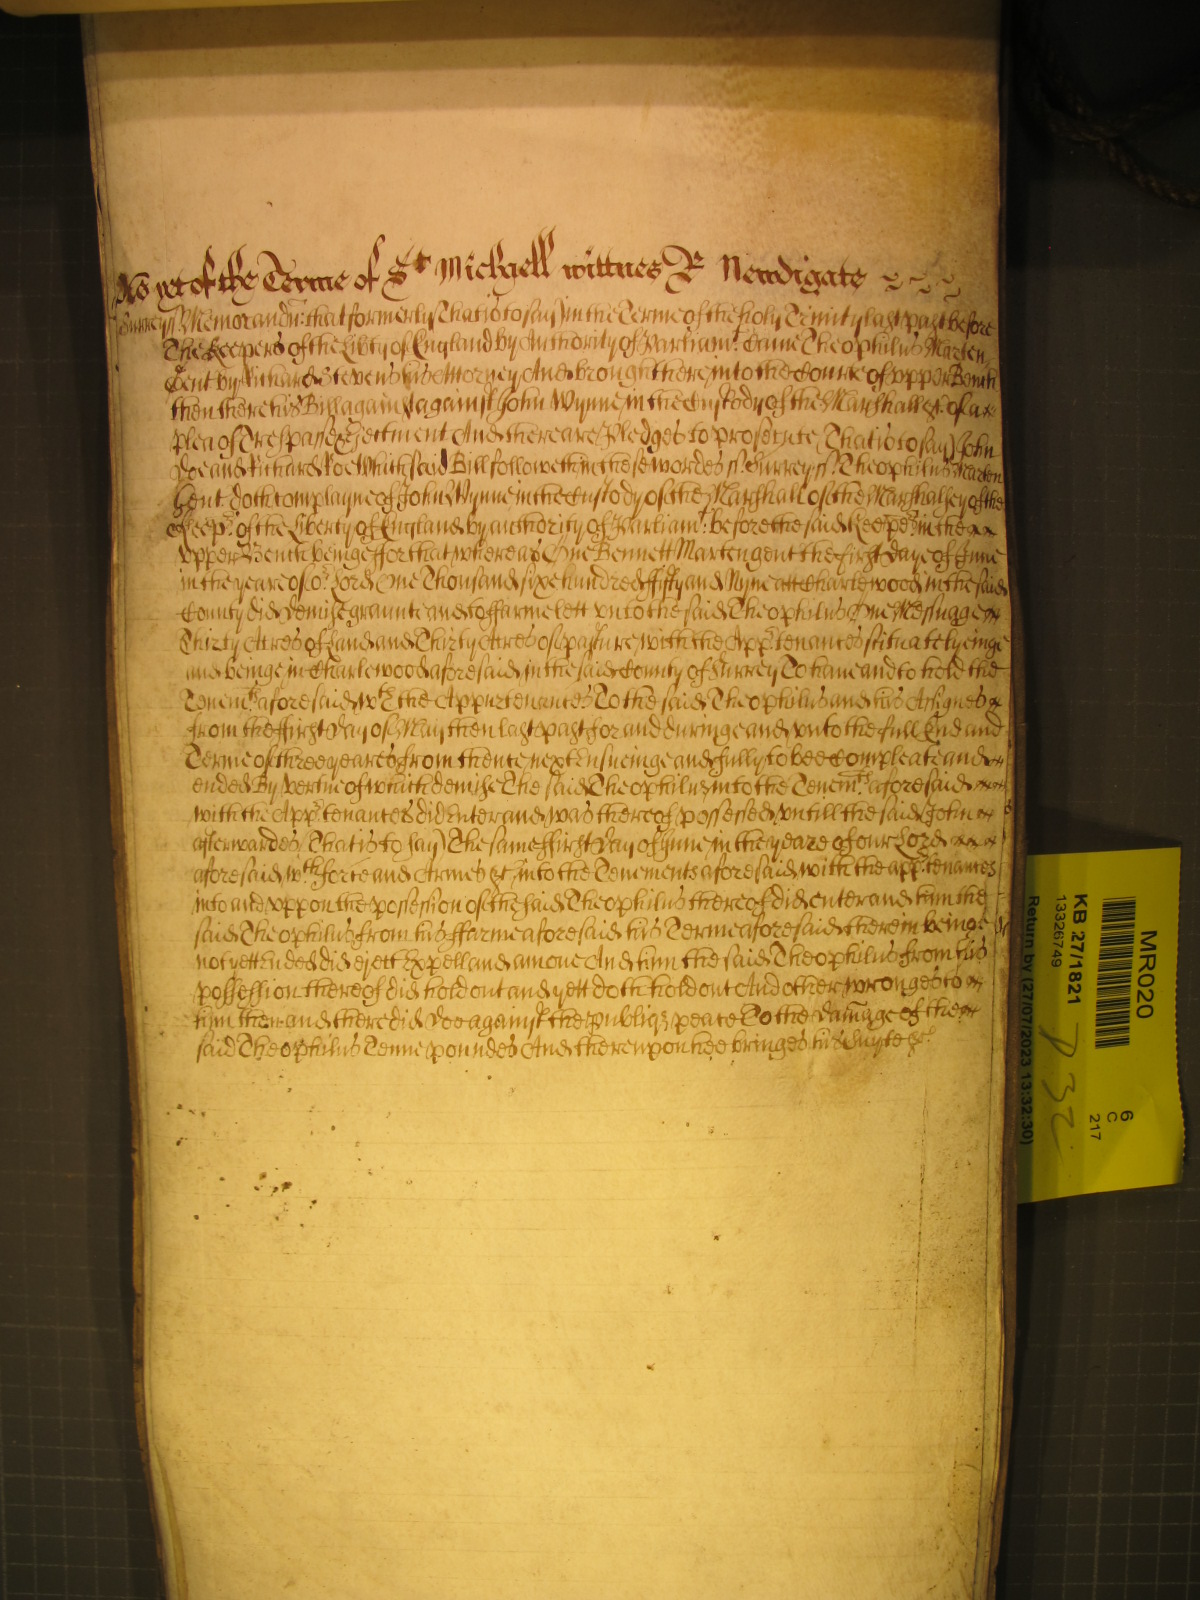 As yet of the Terme of St Michaell wittnes R Newdigate
Surrey ss Memorandu: that formerly (that is to say) in the Terme of the holy Trinity last past before
The Keepers of the Libty of England by Authority of Parliamt: Came Theophilus Marten
Gent by Richard Stevens his Attorney And brought there into the Courte of upper Bench
then there his Bill againe against John Wynne in the Custody of the Marshall &c of a
plea of Trespas & Ejectment And there are Pledges to prosecute (that is to say) John
Doe and Richard Roe Which said Bill followeth in these wordes ss: Surrey ss: Theophilus Marten
Gent: doth complayne of John Wynne in the Custody of the Marshall of the Marshalsey of the
Keeprs of the Liberty of England by authority of Parliamt: before the said Keepers in the
upper Bench beinge for that whereas One Bennett Marten gent the first Daye of June
in the yeare of or Lord One Thousand sixe hundred fifty and Nyne att Charlewood in the said
County did demise graunte and to ffarme lett unto the said Theophilus One Mesuage
Thirty Acres of Land and Thirty Acres of pasture with the Apprtenances situate lyeinge
and beinge in Charlewood aforesaid in the said County of Surrey To have and to hold the
Tenemts aforesaid wth the Appurtenances To the said Theophilus and his Assignes
from the ffirst Day of May then last past for and duringe and unto the full End and
Terme of three yeares from thence next Ensueinge and fully to bee Compleate and
ended By vertue of which demise The said Theophilus into the Tenemts aforesaid
with the Apprtenances did Enter and was thereof possessed untill the said John
afterwardes (That is to say) The same ffirst Day of June in the yeare of our Lord
aforesaid wth force and Armes &c into the Tenements aforesaid with the apprtenances
into and uppon the possession of the said Theophilus thereof did enter and him the
said Theophilus from his ffarme aforesaid his Terme aforesaid therein beinge
not yett Ended did eject Expell and amove And him the said Theophilus from his
possession thereof did hold out and yett doth hold out And other wronges to
him then and there did doe against the Publiq peace To the damage of the
said Theophilus Tenne poundes And thereupon hee bringes his Suyte &c.
MR020
KB 27/1821
13326749
Return by (27/07/2023 13:32:30)
6
C
217